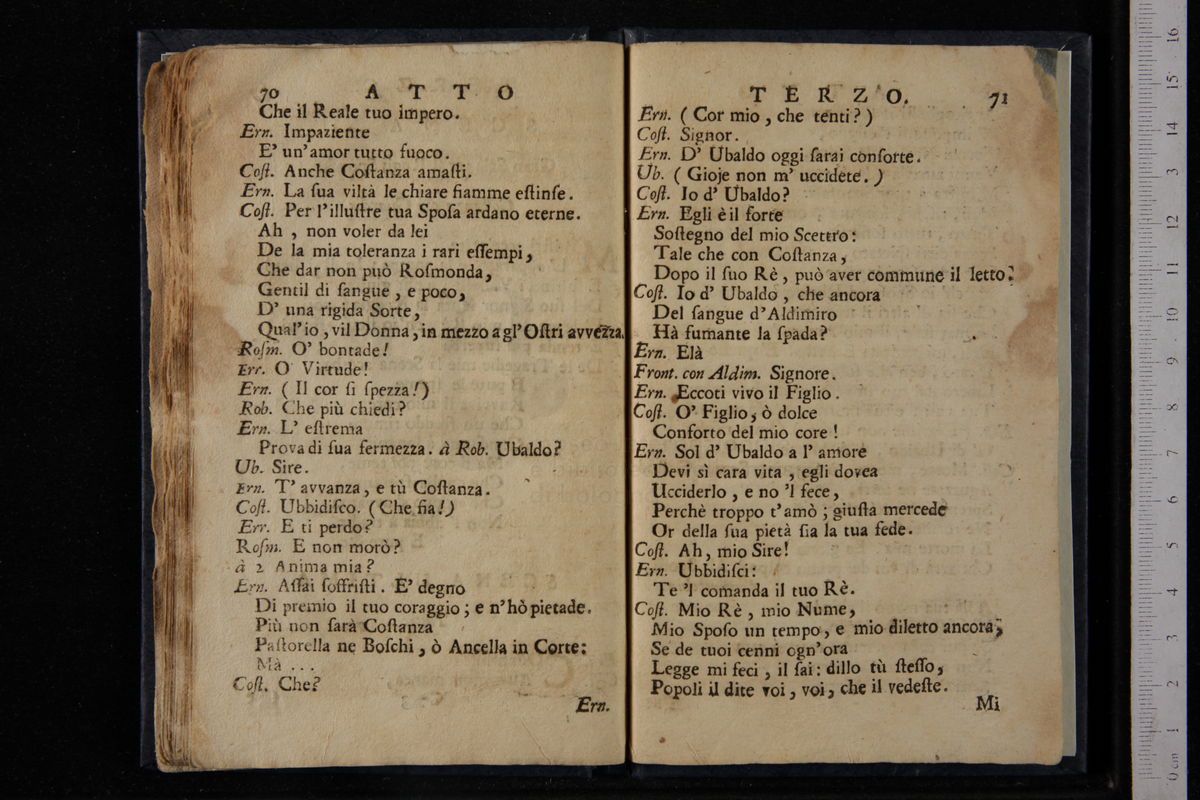 70 ATTO
Che il Reale tuo impero.
Ern. Impaziente
E' un'amor tutto fuoco.
Coſt. Anche Coſtanza amaſti.
Ern. La ſua viltà le chiare fiamme eſtinſe.
Coſt. Per l'illuſtre tua Spoſa ardano eterne.
Ah , non voler da lei
De la mia toleranza i rari eſſempi,
Che dar non può Roſmonda,
Gentil di ſangue , e poco,
D' una rigida Sorte,
Qual'io , vil Donna, in mezzo a gl'Oſtri avvezza.
Roſm. O' bontade!
Err. O Virtude!
Ern. ( Il cor ſi ſpezza!)
Rob. Che più chiedi?
Ern. L' eſtrema
Prova di ſua fermezza. à Rob. Ubaldo?
Ub. Sire.
Ern. T' avvanza, e tù Coſtanza.
Coſt. Ubbidiſco. (Che fia!)
Err. E ti perdo?
Roſm. E non morò?
à 2 Anima mia?
Ern. Aſſai ſoffriſti. E' degno
Di premio il tuo coraggio; e n'hò pietade.
Più non ſarà Coſtanza
Paſtorella ne Boſchi, ò Ancella in Corte:
Mà ...
Coſt. Che?
Ern.
TERZO. 71
Ern. ( Cor mio , che tenti? )
Coſt. Signor.
Ern. D' Ubaldo oggi ſarai conſorte.
Ub. ( Gioje non m' uccidete. )
Coſt. Io d' Ubaldo?
Ern. Egli è il forte
Soſtegno del mio Scettro:
Tale che con Coſtanza,
Dopo il ſuo Rè, può aver commune il letto?
Coſt. Io d' Ubaldo , che ancora
Del ſangue d'Aldimiro
Hà fumante la ſpada?
Ern. Elà
Front. con Aldim. Signore.
Ern. Eccoti vivo il Figlio.
Coſt. O' Figlio, ò dolce
Conforto del mio core!
Ern. Sol d' Ubaldo a l' amore
Devi sì cara vita , egli dovea
Ucciderlo , e no 'l fece,
Perchè troppo t'amò; giuſta mercede
Or della ſua pietà ſia la tua fede.
Coſt. Ah, mio Sire!
Ern. Ubbidiſci:
Te 'l comanda il tuo Rè.
Coſt. Mio Rè, mio Nume,
Mio Spoſo un tempo, e mio diletto ancora;
Se de tuoi cenni ogn'ora
Legge mi feci , il ſai: dillo tù ſteſſo,
Popoli il dite voi, voi, che il vedeſte.
Mi
16
15
14
13
12
11
10
9
8
7
6
5
4
3
2
1
0 cm